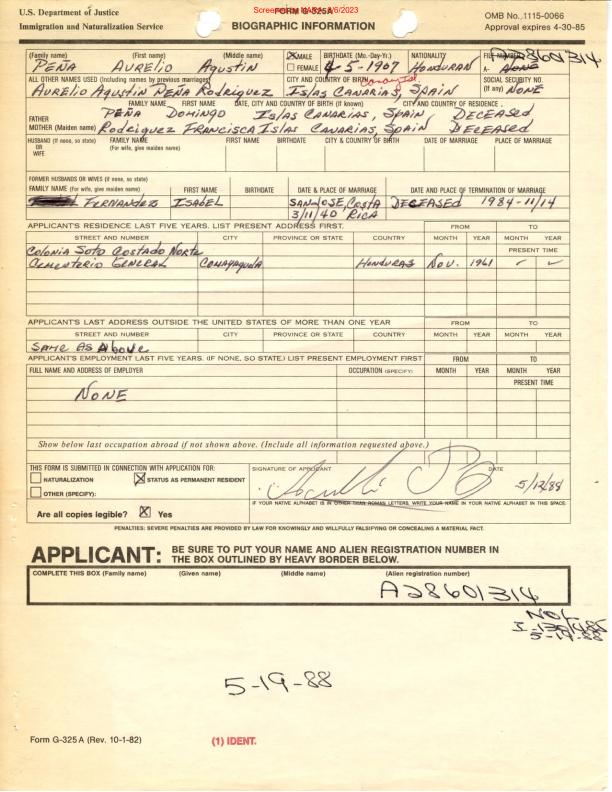 U.S. Department of Justice
Immigration and Naturalization Service
FORM G-325A
BIOGRAPHIC INFORMATION
OMB No. 1115-0066
Approval expires 4-30-85
(Family name) (First name) (Middle name) MALE BIRTHDATE (Mo.-Day-Yr.) NATIONALITY FILE NUMBER
PEÑA AURELIO AGUSTIN FEMALE 4-5-1907 HONDURAN A- NONE A28601314
ALL OTHER NAMES USED (Including names by previous marriages) CITY AND COUNTRY OF BIRTH Canary Isl. SOCIAL SECURITY NO.
AURELIO AGUSTIN PEÑA RODRIGUEZ ISLAS CANARIAS, SPAIN (If any) NONE
FAMILY NAME FIRST NAME DATE, CITY AND COUNTRY OF BIRTH (If known) CITY AND COUNTRY OF RESIDENCE
FATHER PEÑA DOMINGO ISLAS CANARIAS, SPAIN, DECEASED
MOTHER (Maiden name) RODRIGUEZ FRANCISCA ISLAS CANARIAS, SPAIN, DECEASED
HUSBAND (If none, so state) OR WIFE FAMILY NAME (For wife, give maiden name) FIRST NAME BIRTHDATE CITY & COUNTRY OF BIRTH DATE OF MARRIAGE PLACE OF MARRIAGE
FORMER HUSBANDS OR WIVES (if none, so state)
FAMILY NAME (For wife, give maiden name) FIRST NAME BIRTHDATE DATE & PLACE OF MARRIAGE DATE AND PLACE OF TERMINATION OF MARRIAGE
FERNANDEZ ISABEL SAN JOSE, COSTA DECEASED 1984-11/14
3/11/40 RICA
APPLICANT'S RESIDENCE LAST FIVE YEARS. LIST PRESENT ADDRESS FIRST. FROM TO
STREET AND NUMBER CITY PROVINCE OR STATE COUNTRY MONTH YEAR MONTH YEAR
COLONIA SOTO COSTADO NORTE PRESENT TIME
CEMENTERIO GENERAL COMAYAGUELA HONDURAS NOV. 1961
APPLICANT'S LAST ADDRESS OUTSIDE THE UNITED STATES OF MORE THAN ONE YEAR FROM TO
STREET AND NUMBER CITY PROVINCE OR STATE COUNTRY MONTH YEAR MONTH YEAR
SAME AS ABOVE
APPLICANT'S EMPLOYMENT LAST FIVE YEARS. (IF NONE, SO STATE) LIST PRESENT EMPLOYMENT FIRST FROM TO
FULL NAME AND ADDRESS OF EMPLOYER OCCUPATION (SPECIFY) MONTH YEAR MONTH YEAR
PRESENT TIME
NONE
Show below last occupation abroad if not shown above. (Include all information requested above.)
THIS FORM IS SUBMITTED IN CONNECTION WITH APPLICATION FOR: SIGNATURE OF APPLICANT DATE
NATURALIZATION STATUS AS PERMANENT RESIDENT 5/12/88
OTHER (SPECIFY):
IF YOUR NATIVE ALPHABET IS IN OTHER THAN ROMAN LETTERS, WRITE YOUR NAME IN YOUR NATIVE ALPHABET IN THIS SPACE:
Are all copies legible? Yes
PENALTIES: SEVERE PENALTIES ARE PROVIDED BY LAW FOR KNOWINGLY AND WILLFULLY FALSIFYING OR CONCEALING A MATERIAL FACT.
APPLICANT: BE SURE TO PUT YOUR NAME AND ALIEN REGISTRATION NUMBER IN
THE BOX OUTLINED BY HEAVY BORDER BELOW.
COMPLETE THIS BOX (Family name) (Given name) (Middle name) (Alien registration number)
A28601314
5-19-88
5-19-88
Form G-325 A (Rev. 10-1-82) (1) IDENT.